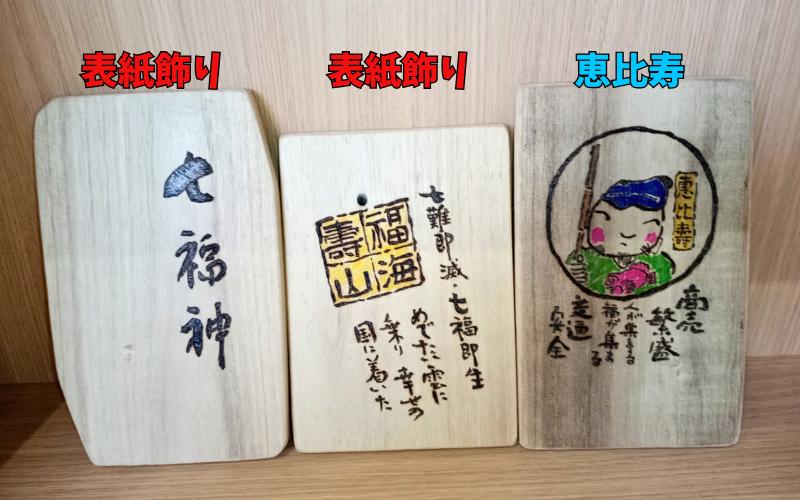 表紙飾り
表紙飾り
恵比寿
七福神
七難即滅・七福即生
福海
壽山
めでたい雲に
乗り 幸せの
国に着いた
恵比壽
商売
繁盛
人が集まる
福が集まる
交通
安全